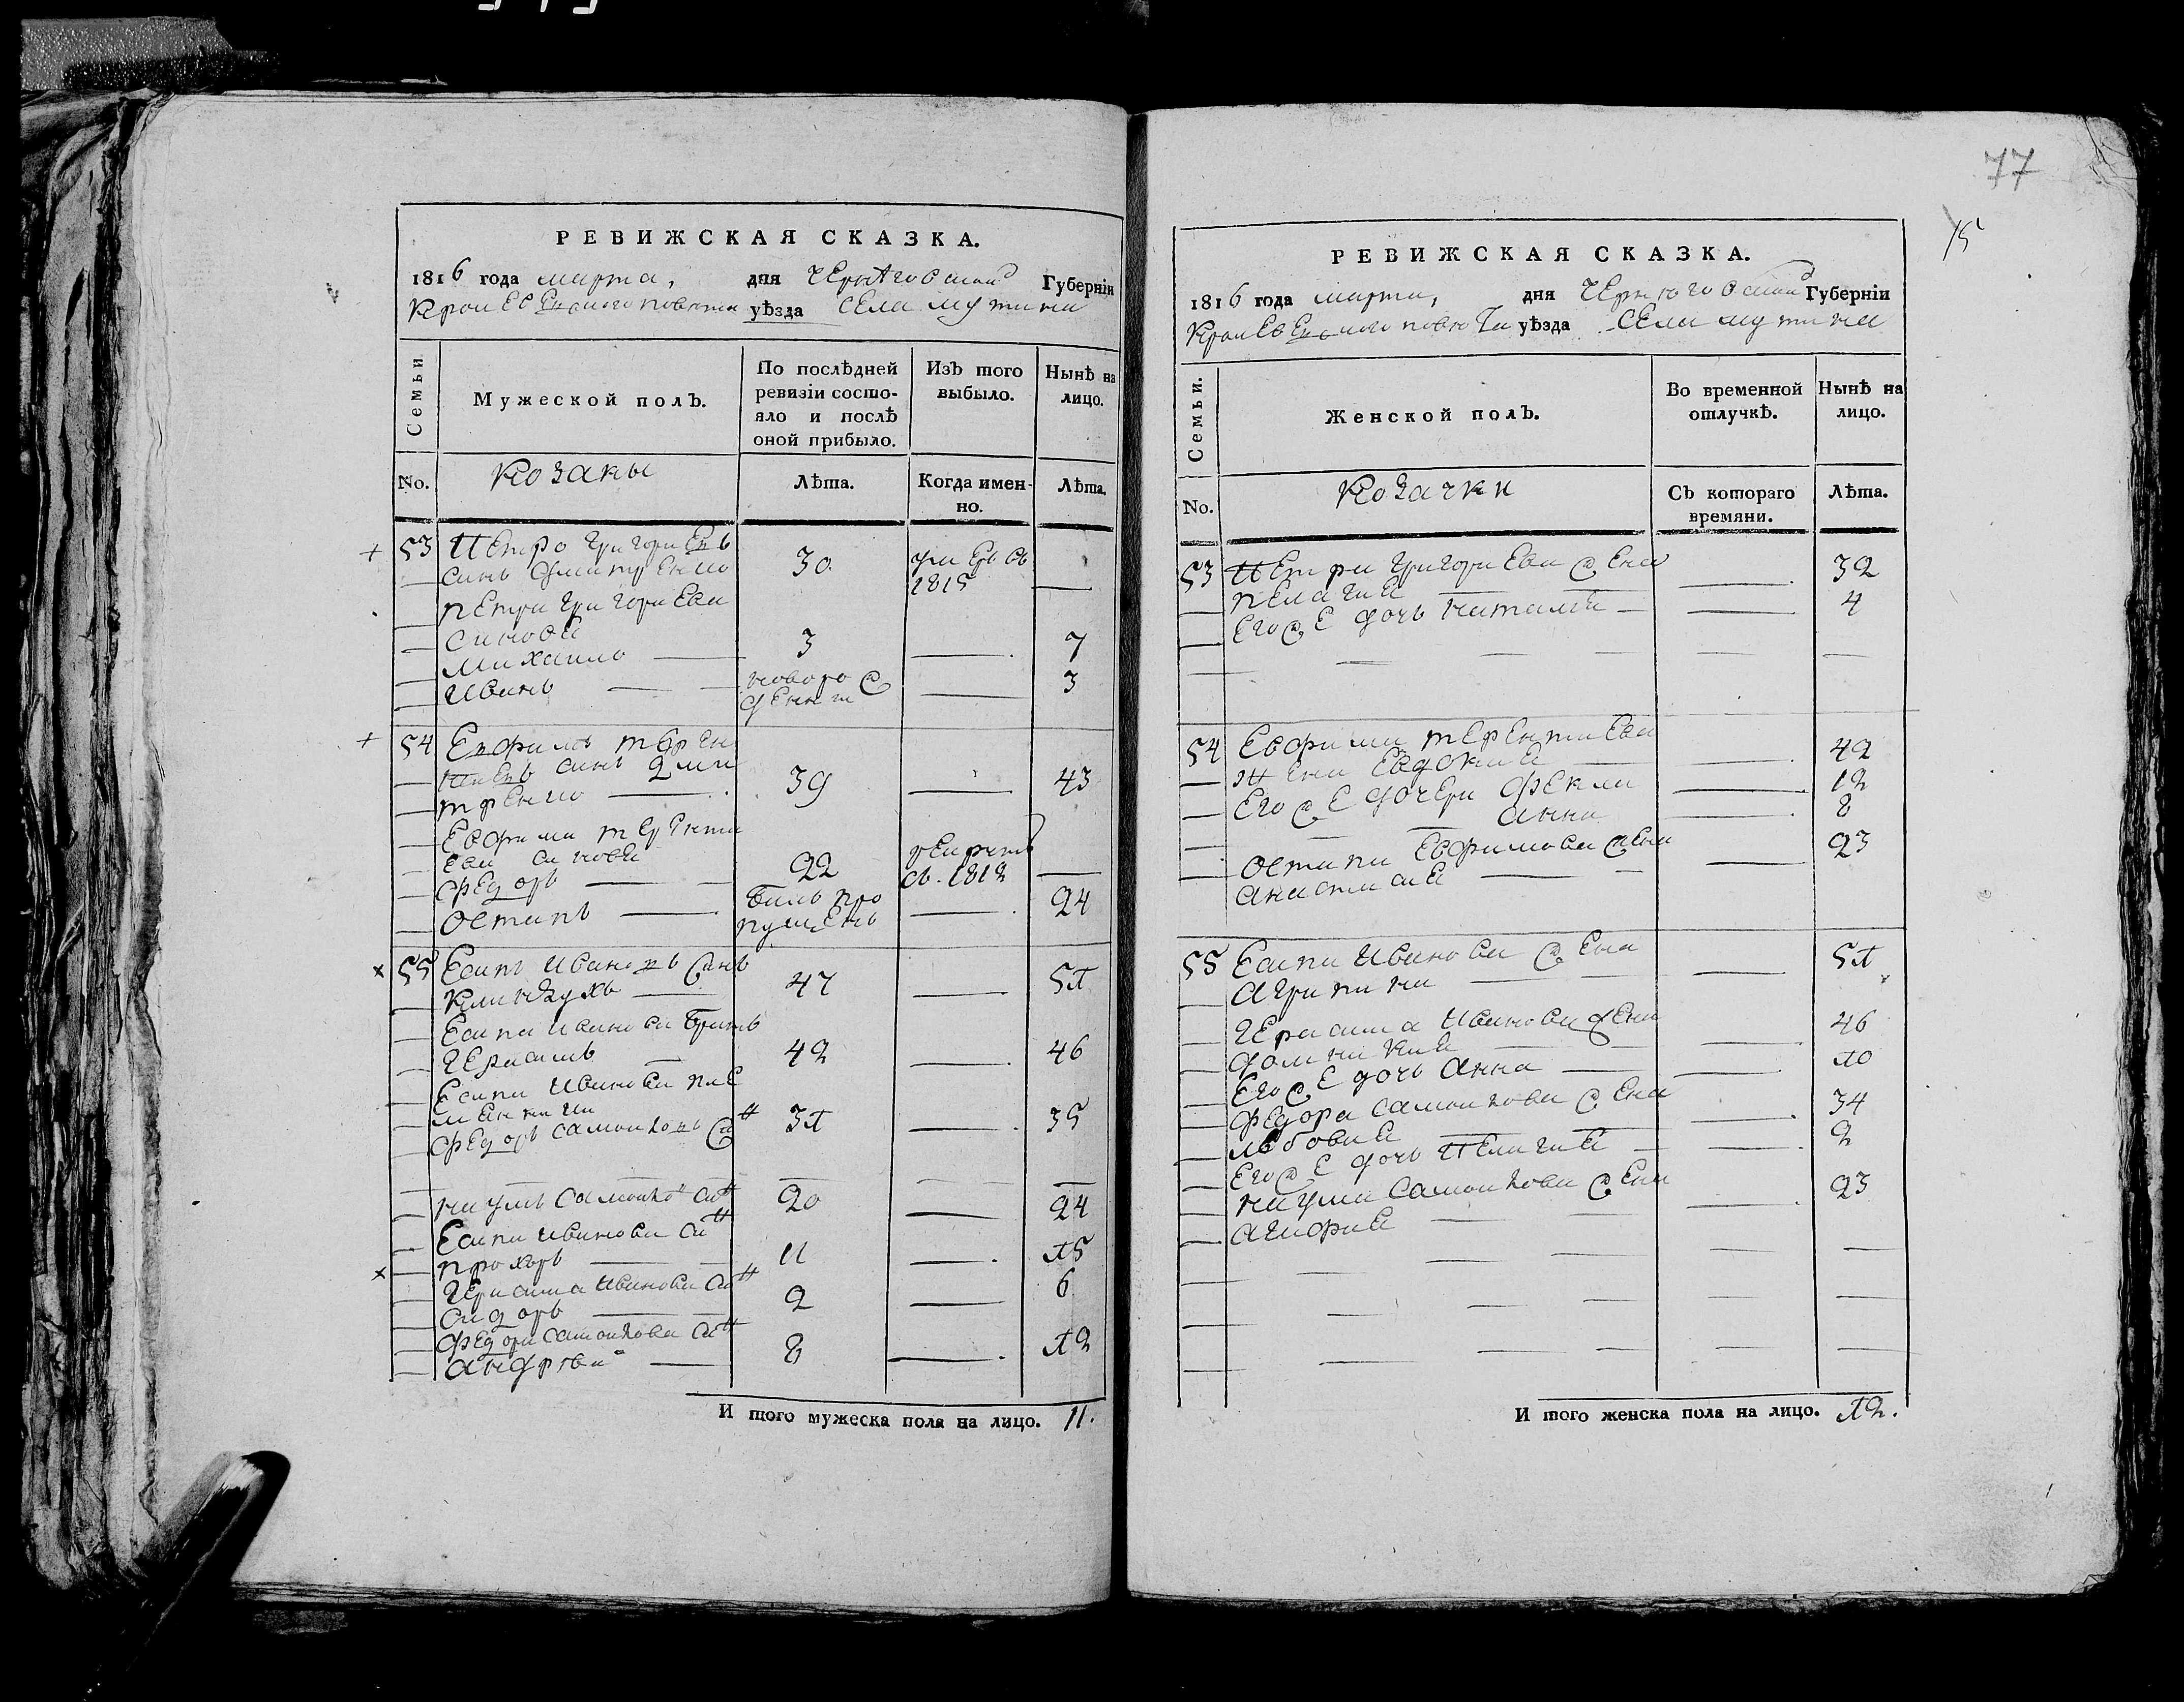 77
15
РЕВИЖСКАЯ СКАЗКА.
1816 года марта, дня Черниговской Губерніи
Кролевецкого повета уѣзда села мутина
Семьи
Мужеской полъ.
По послѣдней ревизіи состо-
яло и послѣ
оной прибыло.
Изъ того
выбыло.
Нынѣ на
лицо.
No.
Козаки
Лѣта.
Когда имен-
но.
Лѣта.
53 Петро григориевъ
синъ дмитренко 30 умеръ въ
1815
петра григориева
синовя
михаило 3 7
иванъ новорож
денъ 3
54 Евфимъ терен
тиевъ синъ дми
тренко 39 43
Евфима теренти
ева синовя
федоръ 22 рекрутъ
въ 1812
остапъ билъ про
пущенъ 24
55 Есипъ ивановъ синъ
47 51
Есипа иванова братъ
герасимъ 42 46
Есипа иванова пле
мянники
федоръ самойловъ си 31 35
наумъ самойло син 20 24
Есипа иванова син
прохоръ 11 15
герасима иванова син
сидоръ 2 6
федора самойлова син
андрѣй 8 12
И того мужеска пола на лицо. 11.
РЕВИЖСКАЯ СКАЗКА.
1816 года марта, дня Черниговской Губерніи
Кролевецкого повета уѣзда села мутина
Семьи.
Женской полъ.
Во временной
отлучкѣ.
Нынѣ на
лицо.
No.
Козачки
Съ котораго
времяни.
Лѣта.
53 Петра григориева жена
пелагия 32
его же дочь наталия 4
54 Евфима терентиева
жена евдокия 42
его же дочери фекла 12
анна 8
остапа евфимова жена
анастасия 23
55 Есипа иванова жена
агрипина 51
герасима иванова жена
домникия 46
его же дочь анна 10
федора самойлова жена
любовия 34
его же дочь пелагия 2
наума самойлова жена
агафия 23
И того женска пола на лицо. 12.